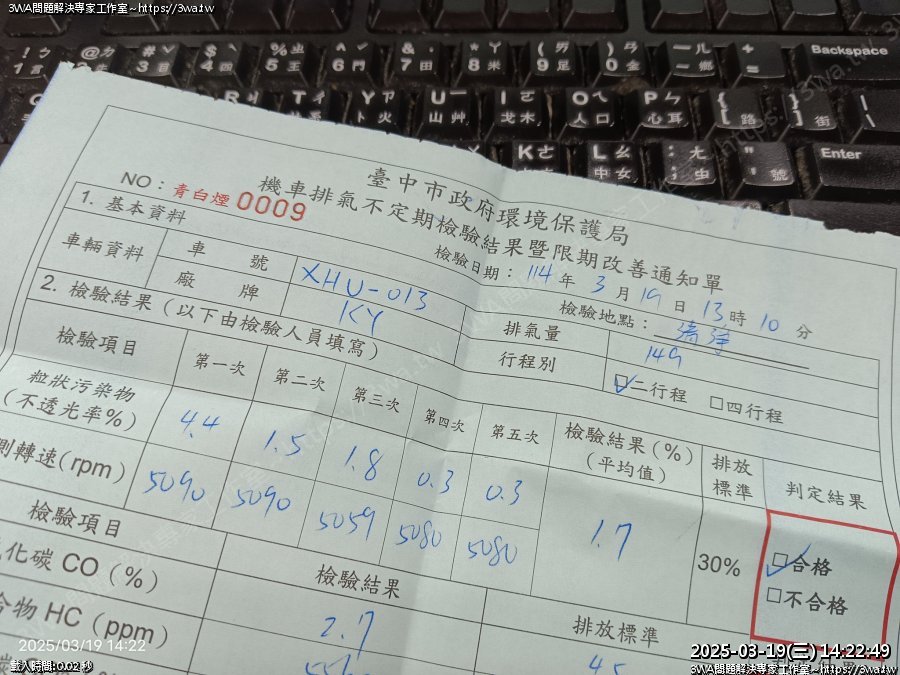 3WA問題解決專家工作室~https://3wa.tw
3WA問題解決專家工作室~https://3wa.tw
Backspace
Enter
臺中市政府環境保護局
NO：青白煙 0009
機車排氣不定期檢驗結果暨限期改善通知單
檢驗日期：114年3月19日13時10分
1. 基本資料
檢驗地點：
車輛資料
車號
XHU-013
排氣量
149
廠牌
KY
行程別
☑二行程 □四行程
2. 檢驗結果（以下由檢驗人員填寫）
檢驗項目
第一次
第二次
第三次
第四次
第五次
檢驗結果(%)
(平均值)
排放
標準
判定結果
粒狀污染物
(不透光率%)
4.4
1.5
1.8
0.3
0.3
1.7
30%
☑合格
□不合格
測轉速(rpm)
5090
5090
5059
5080
5080
檢驗項目
檢驗結果
排放標準
化碳 CO (%)
2.7
4.5
合物 HC (ppm)
2025/03/19 14:22
載入時間: 0.02 秒
2025-03-19(三) 14:22:49
3WA問題解決專家工作室~https://3wa.tw